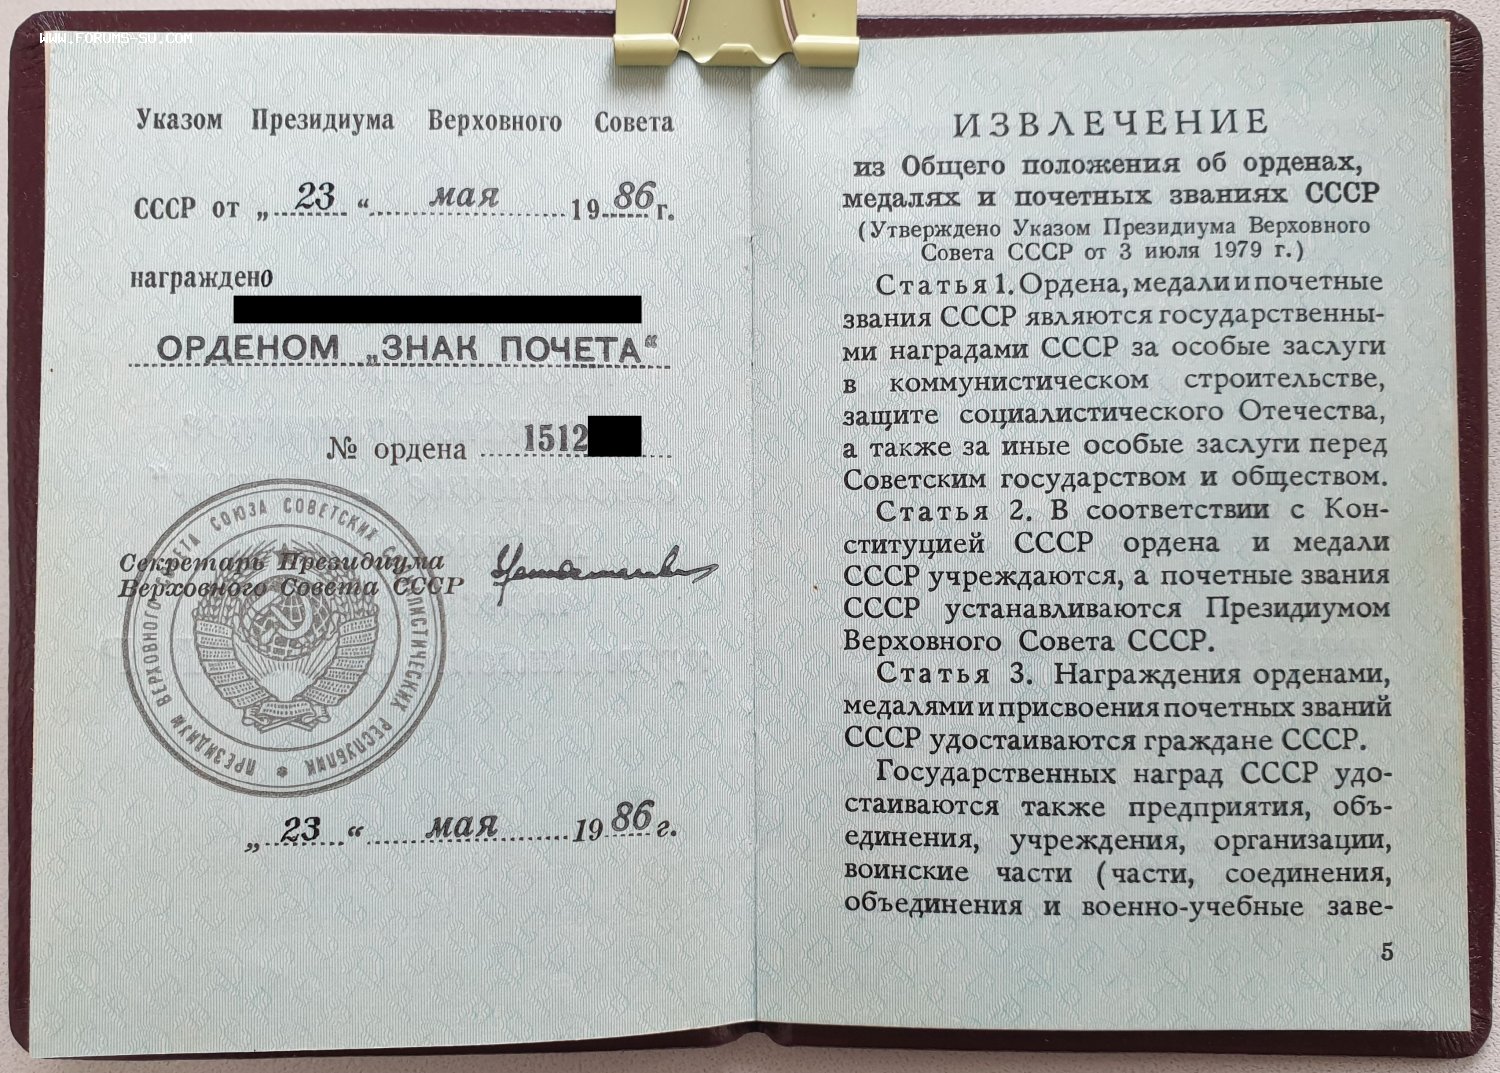 WWW.FORUMS-SU.COM
Указом Президиума Верховного Совета
СССР от „ 23 “ мая 1986 г.
награждено
ОРДЕНОМ „ЗНАК ПОЧЕТА“
№ ордена 1512
ПРЕЗИДИУМ ВЕРХОВНОГО СОВЕТА СОЮЗА СОВЕТСКИХ СОЦИАЛИСТИЧЕСКИХ РЕСПУБЛИК
Секретарь Президиума
Верховного Совета СССР
„ 23 “ мая 1986 г.
ИЗВЛЕЧЕНИЕ
из Общего положения об орденах,
медалях и почетных званиях СССР
(Утверждено Указом Президиума Верховного
Совета СССР от 3 июля 1979 г.)
Статья 1. Ордена, медали и почетные
звания СССР являются государственны-
ми наградами СССР за особые заслуги
в коммунистическом строительстве,
защите социалистического Отечества,
а также за иные особые заслуги перед
Советским государством и обществом.
Статья 2. В соответствии с Кон-
ституцией СССР ордена и медали
СССР учреждаются, а почетные звания
СССР устанавливаются Президиумом
Верховного Совета СССР.
Статья 3. Награждения орденами,
медалями и присвоения почетных званий
СССР удостаиваются граждане СССР.
Государственных наград СССР удо-
стаиваются также предприятия, объ-
единения, учреждения, организации,
воинские части (части, соединения,
объединения и военно-учебные заве-
5